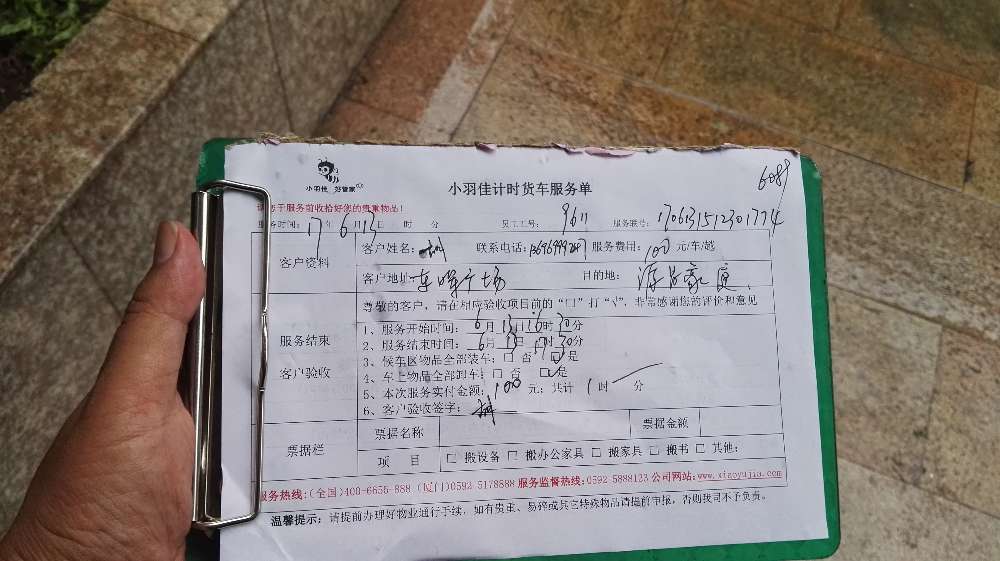 6089
小羽佳 好管家
小羽佳计时货车服务单
请您于服务前收拾好您的贵重物品!
服务时间: 17 年 6 月 13 日 时 分 员工工号: 9611 服务联号: 1706131512301774
客户资料
客户姓名: 联系电话: 服务费用: 100 元/车/趟
客户地址: 广场 目的地: 家庭
尊敬的客户,请在相应验收项目前的“□”打“√”,非常感谢您的评价和意见
服务结束
客户验收
1、服务开始时间: 6 月 13 日 16 时 30 分
2、服务结束时间: 6 月 13 日 17 时 30 分
3、候车区物品全部装车: □ 否 □ 是
4、车上物品全部卸车: □ 否 □ 是
5、本次服务实付金额: 100 元; 共计 1 时 分
6、客户验收签字:
票据栏
票据名称 票据金额
项 目 □ 搬设备 □ 搬办公家具 □ 搬家具 □ 搬书 □ 其他:
服务热线: (全国)400-6656-888 (厦门)0592-5178888 服务监督热线: 0592-5888123 公司网站: www.xiaoyujia.com
温馨提示: 请提前办理好物业通行手续, 如有贵重、易碎或其它特殊物品请提前申报, 否则我司不予负责。